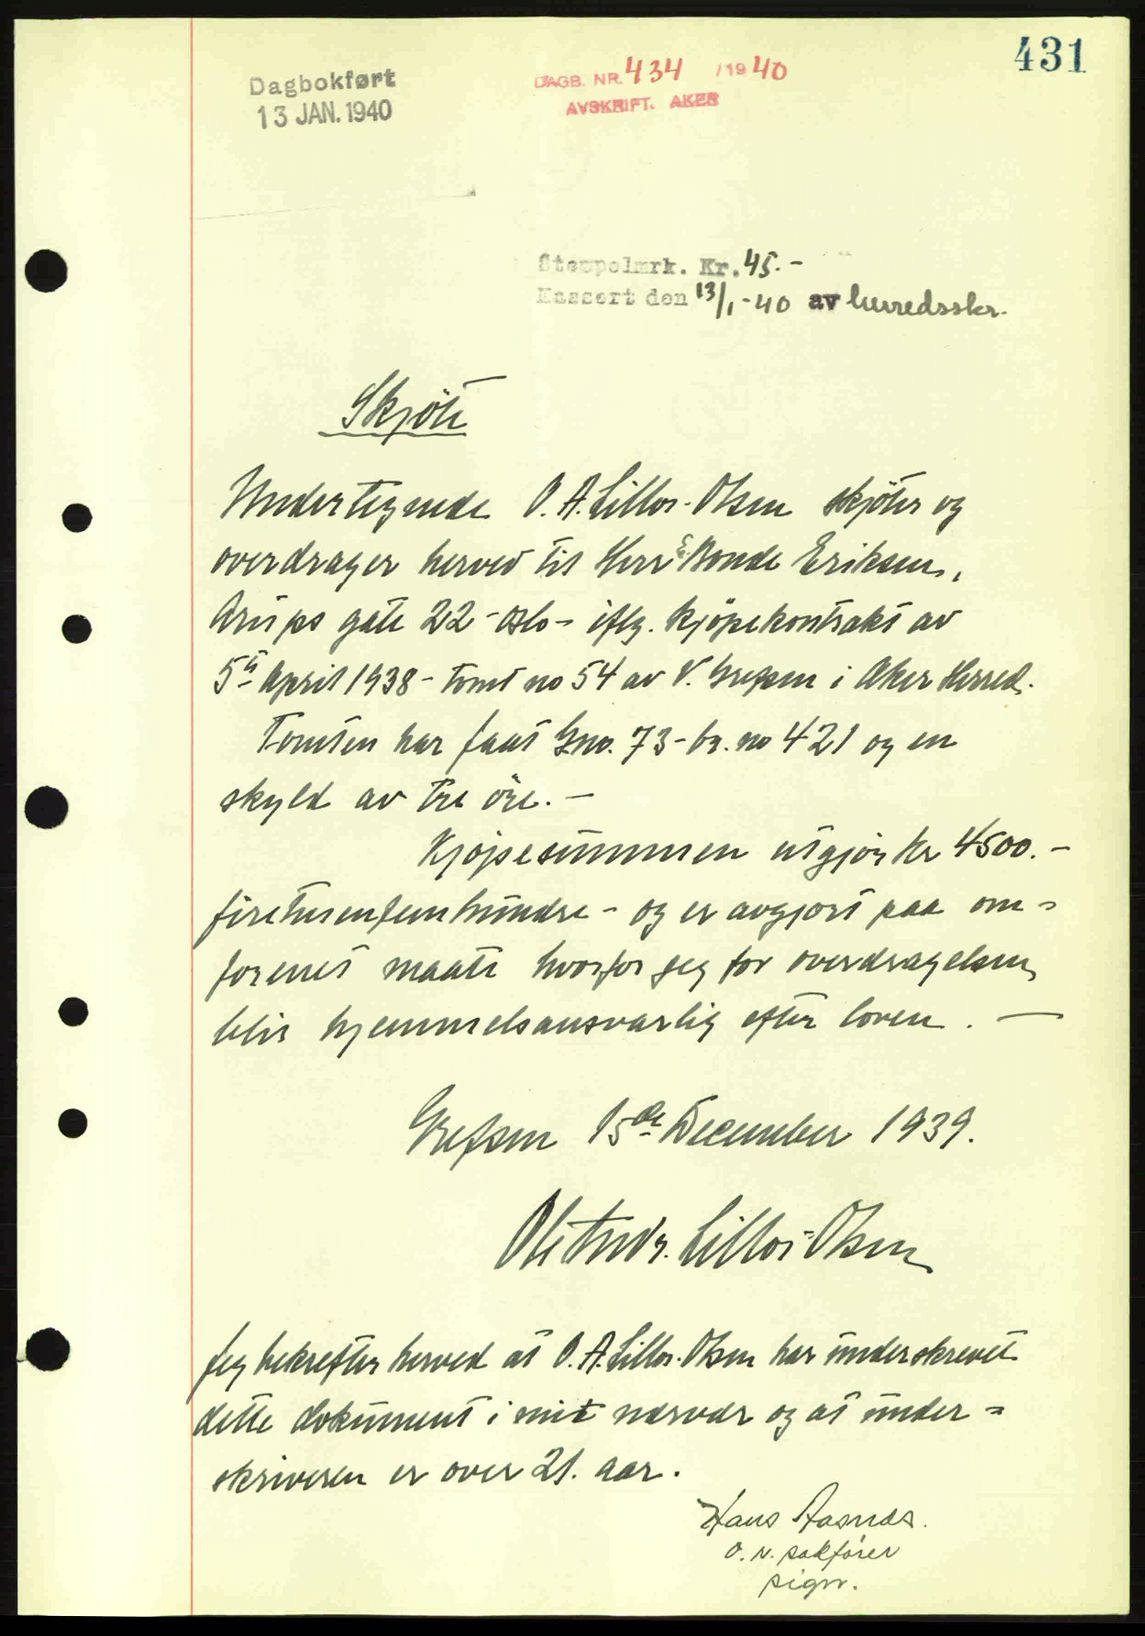 431
Dagbokført
13 JAN. 1940
DAGB. NR. 434 /1940
AVSKRIFT. AKER
Stempelmrk. Kr. 45.-
Kassert den 13/1-40 av herredsskr.
Skjöte
Undertegnede O. A. Lillo-Olsen skjöter og
overdrager herved til Herr E. Bonde Eriksen,
Arups gate 22 - Oslo - iflg. kjöpekontrakt av
5te April 1938 - tomt no 54 av V. Grefsen i Aker Herred.
Tomten har faat Gno. 73 - br. no 421 og en
skyld av tre öre. -
Kjöpesummen utgjör kr 4500.-
firetusenfemhundre - og er avgjort paa om-
forenet maate hvorfor jeg for overdragelsen
blir hjemmelsansvarlig efter loven. -
Grefsen 15de December 1939.
Ole Andr. Lillo-Olsen
Jeg bekrefter herved at O. A. Lillo-Olsen har underskrevet
dette dokument i mit nærvær og at under-
skriveren er over 21. aar.
Hans Aasnæs.
o. r. sakfører
sign.